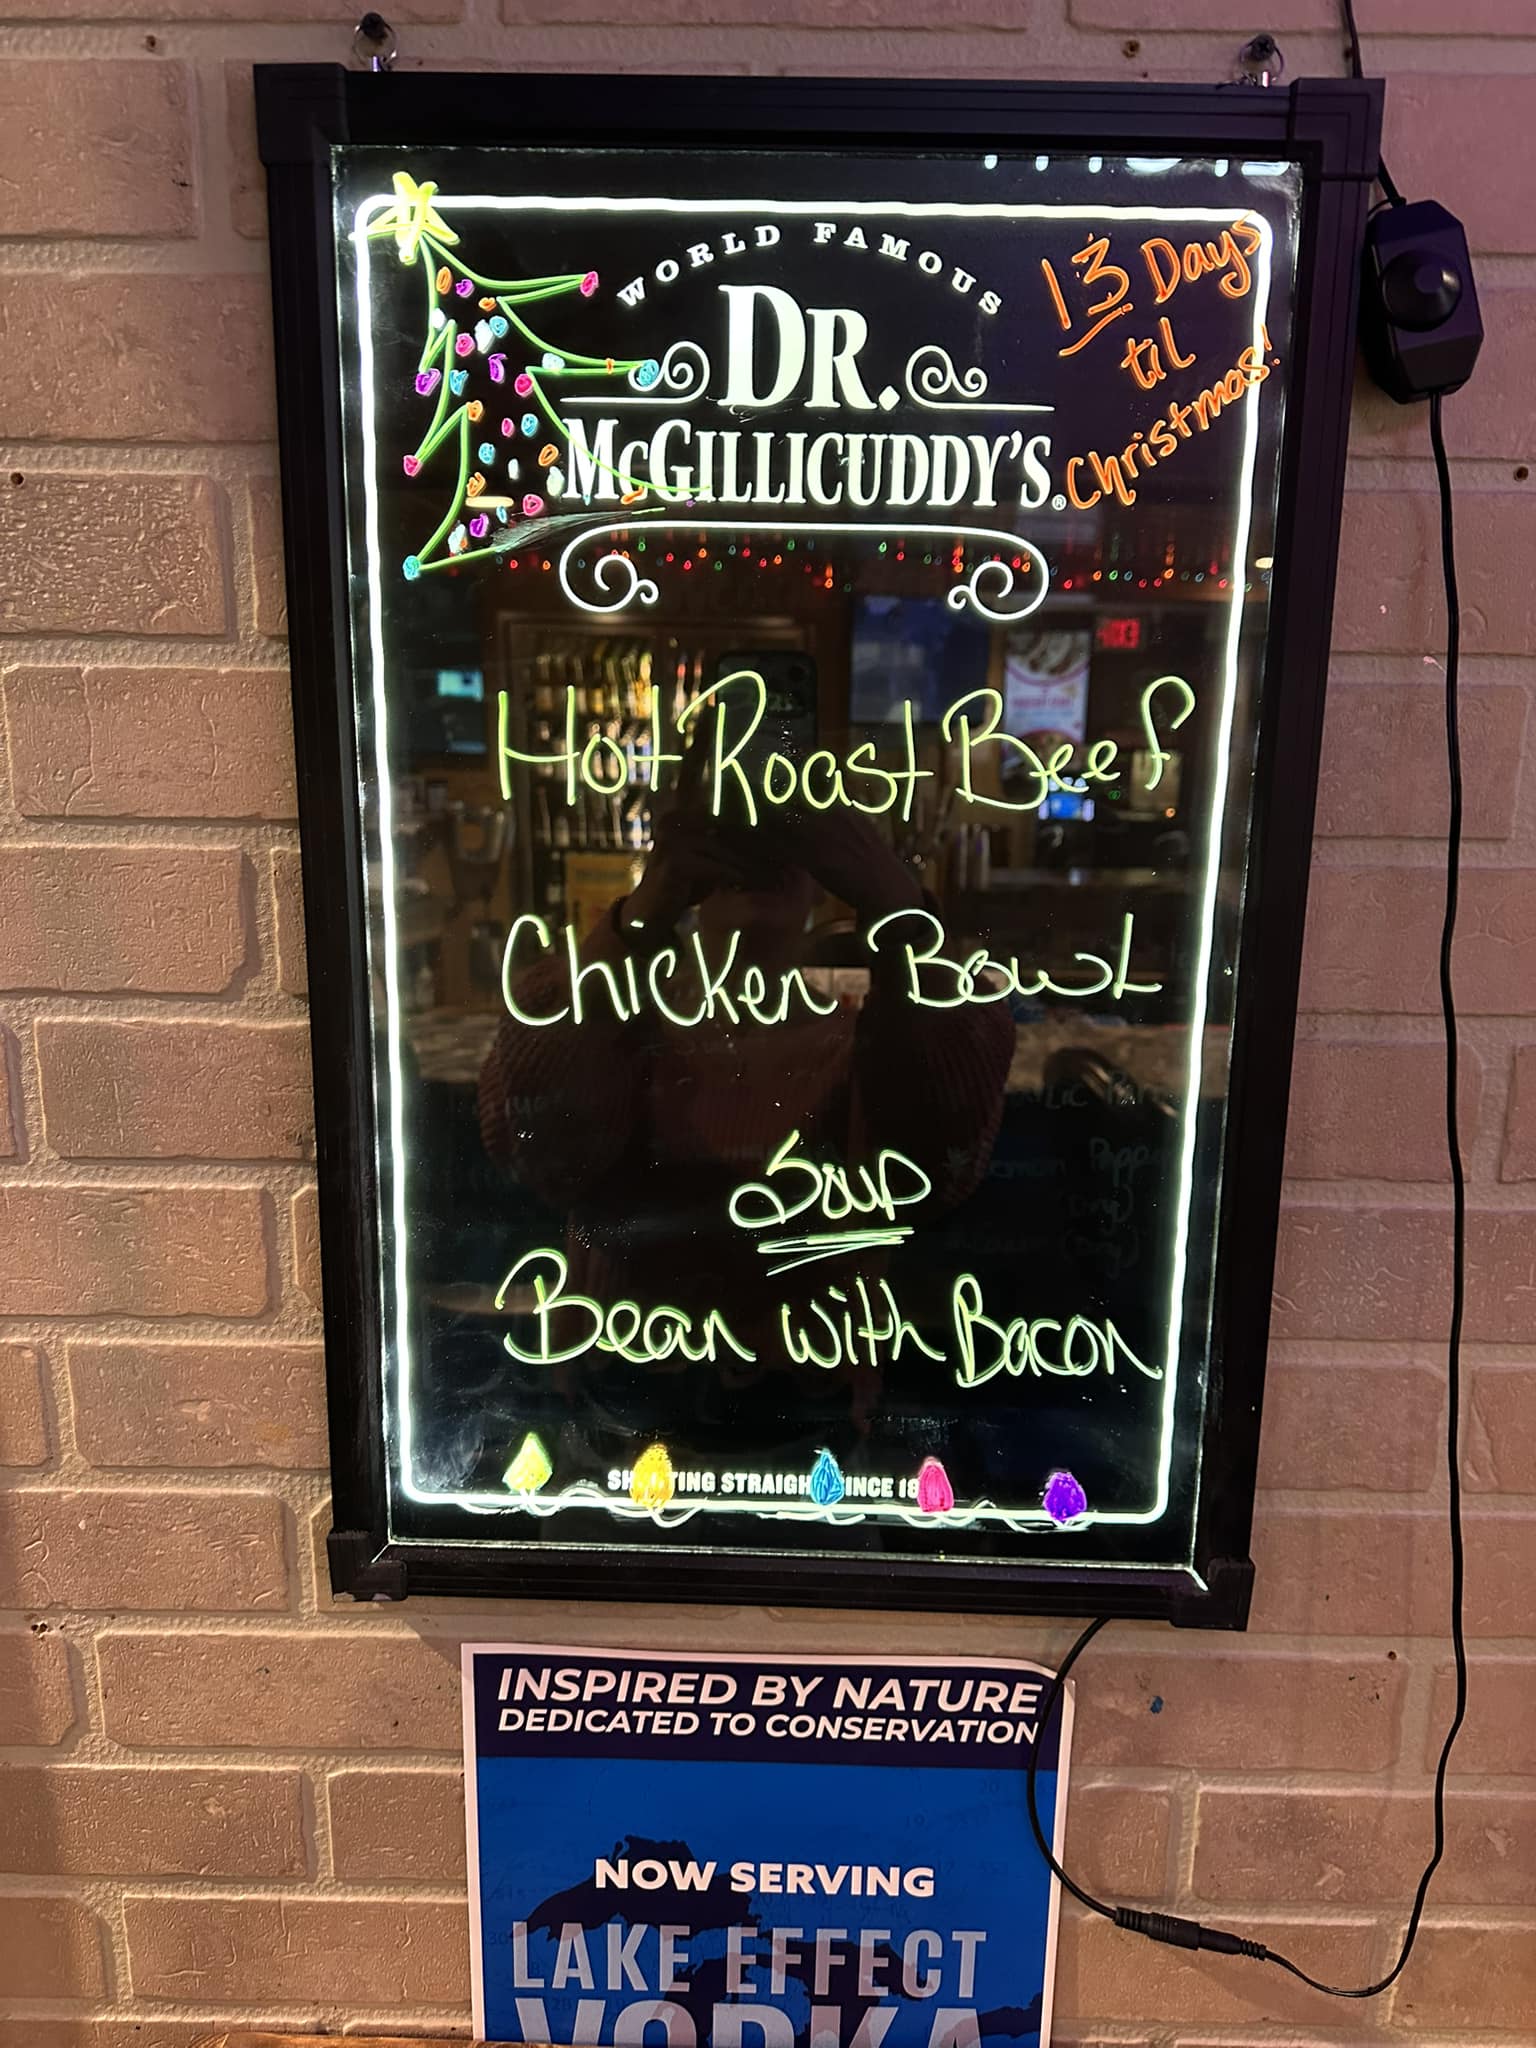 WORLD FAMOUS
DR.
McGILLICUDDY'S®
13 Days
til
Christmas!
Hot Roast Beef
Chicken Bowl
Soup
Bean with Bacon
STRAIGH INCE 18
INSPIRED BY NATURE
DEDICATED TO CONSERVATION
NOW SERVING
LAKE EFFECT
VODKA